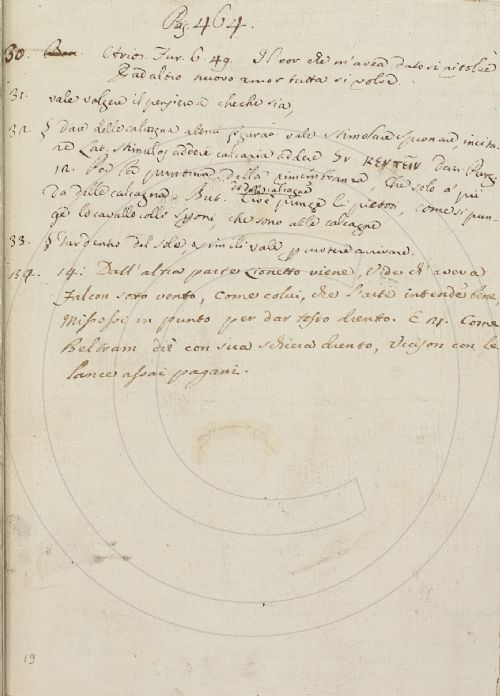 Pag. 464.
30. Arios. Fur. 6. 49. Il cor che m'avea dato si ritolse
E ad altro nuovo amor tutta si volse.
31. vale volgere il pensiero a checche sia,
32. § dare delle calcagna altrui figurato vale stimolare spronare, incita
re Lat. stimulos addere calcaria addere Gr. κεντεῖν Dan. Purg.
12. Per la puntura della rimembranza, Che solo a' pii
da delle calcagne. But. Cioè punge li pietosi, come si pun
ge lo cavallo colli sproni, che sono alle calcagne
33. § del sole, e simili vale
34. 14: Dall'altra parte Lionetto viene, Vide ch'aveva
Falcon sotto vento, come colui, che l'arte intende bene
Missesi in punto per dar tosto drento. E st. Come
Beltram diè con sua schiera drento, Uccison con le
lance assai pagani.
19